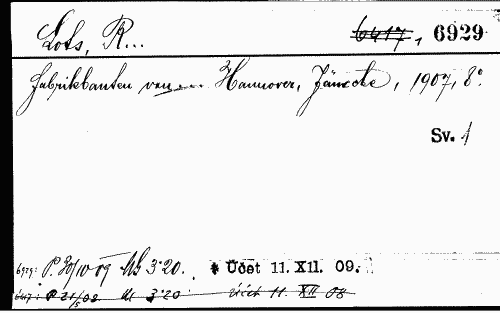 Lots, R... 6417, 6929
Fabrikbauten von... Hannover, Jänecke, 1907, 8°.
Sv. 1
6929: P. 30/10 09 M 3·20. * Účet 11. XII. 09.
6417: P 21/5 08 M 3·20 Účet 11. XII 08